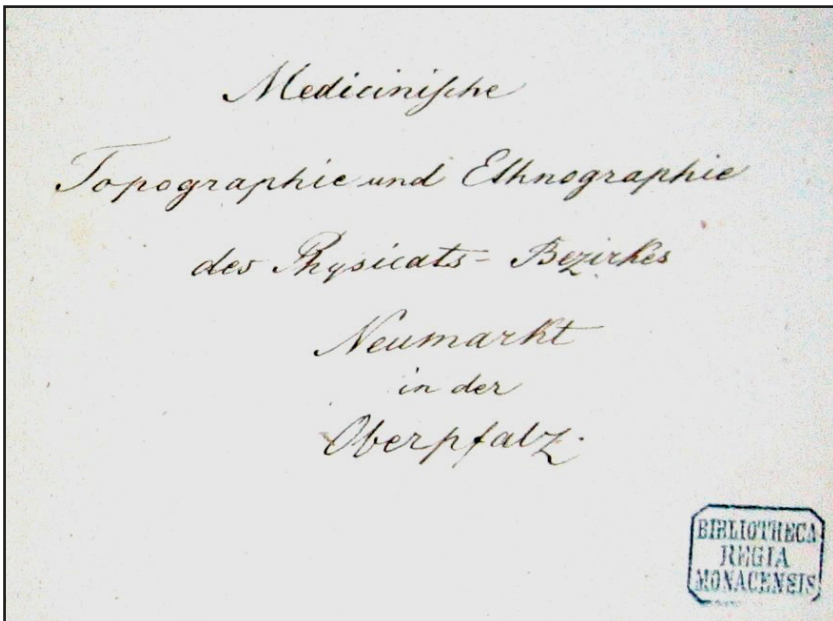 Medicinische
Topographie und Ethnographie
des Physicats- Bezirkes
Neumarkt
in der
Oberpfalz.
BIBLIOTHECA
REGIA
MONACENSIS